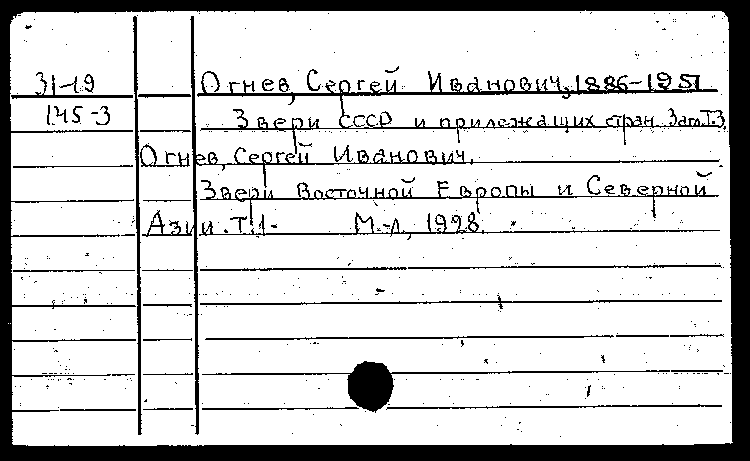 31-19 Огнев, Сергей Иванович, 1886-1951
145-3 Звери СССР и прилежащих стран. Загл. Т.3.
Огнев, Сергей Иванович.
Звери Восточной Европы и Северной
Азии. Т. 1- М.-Л., 1928.